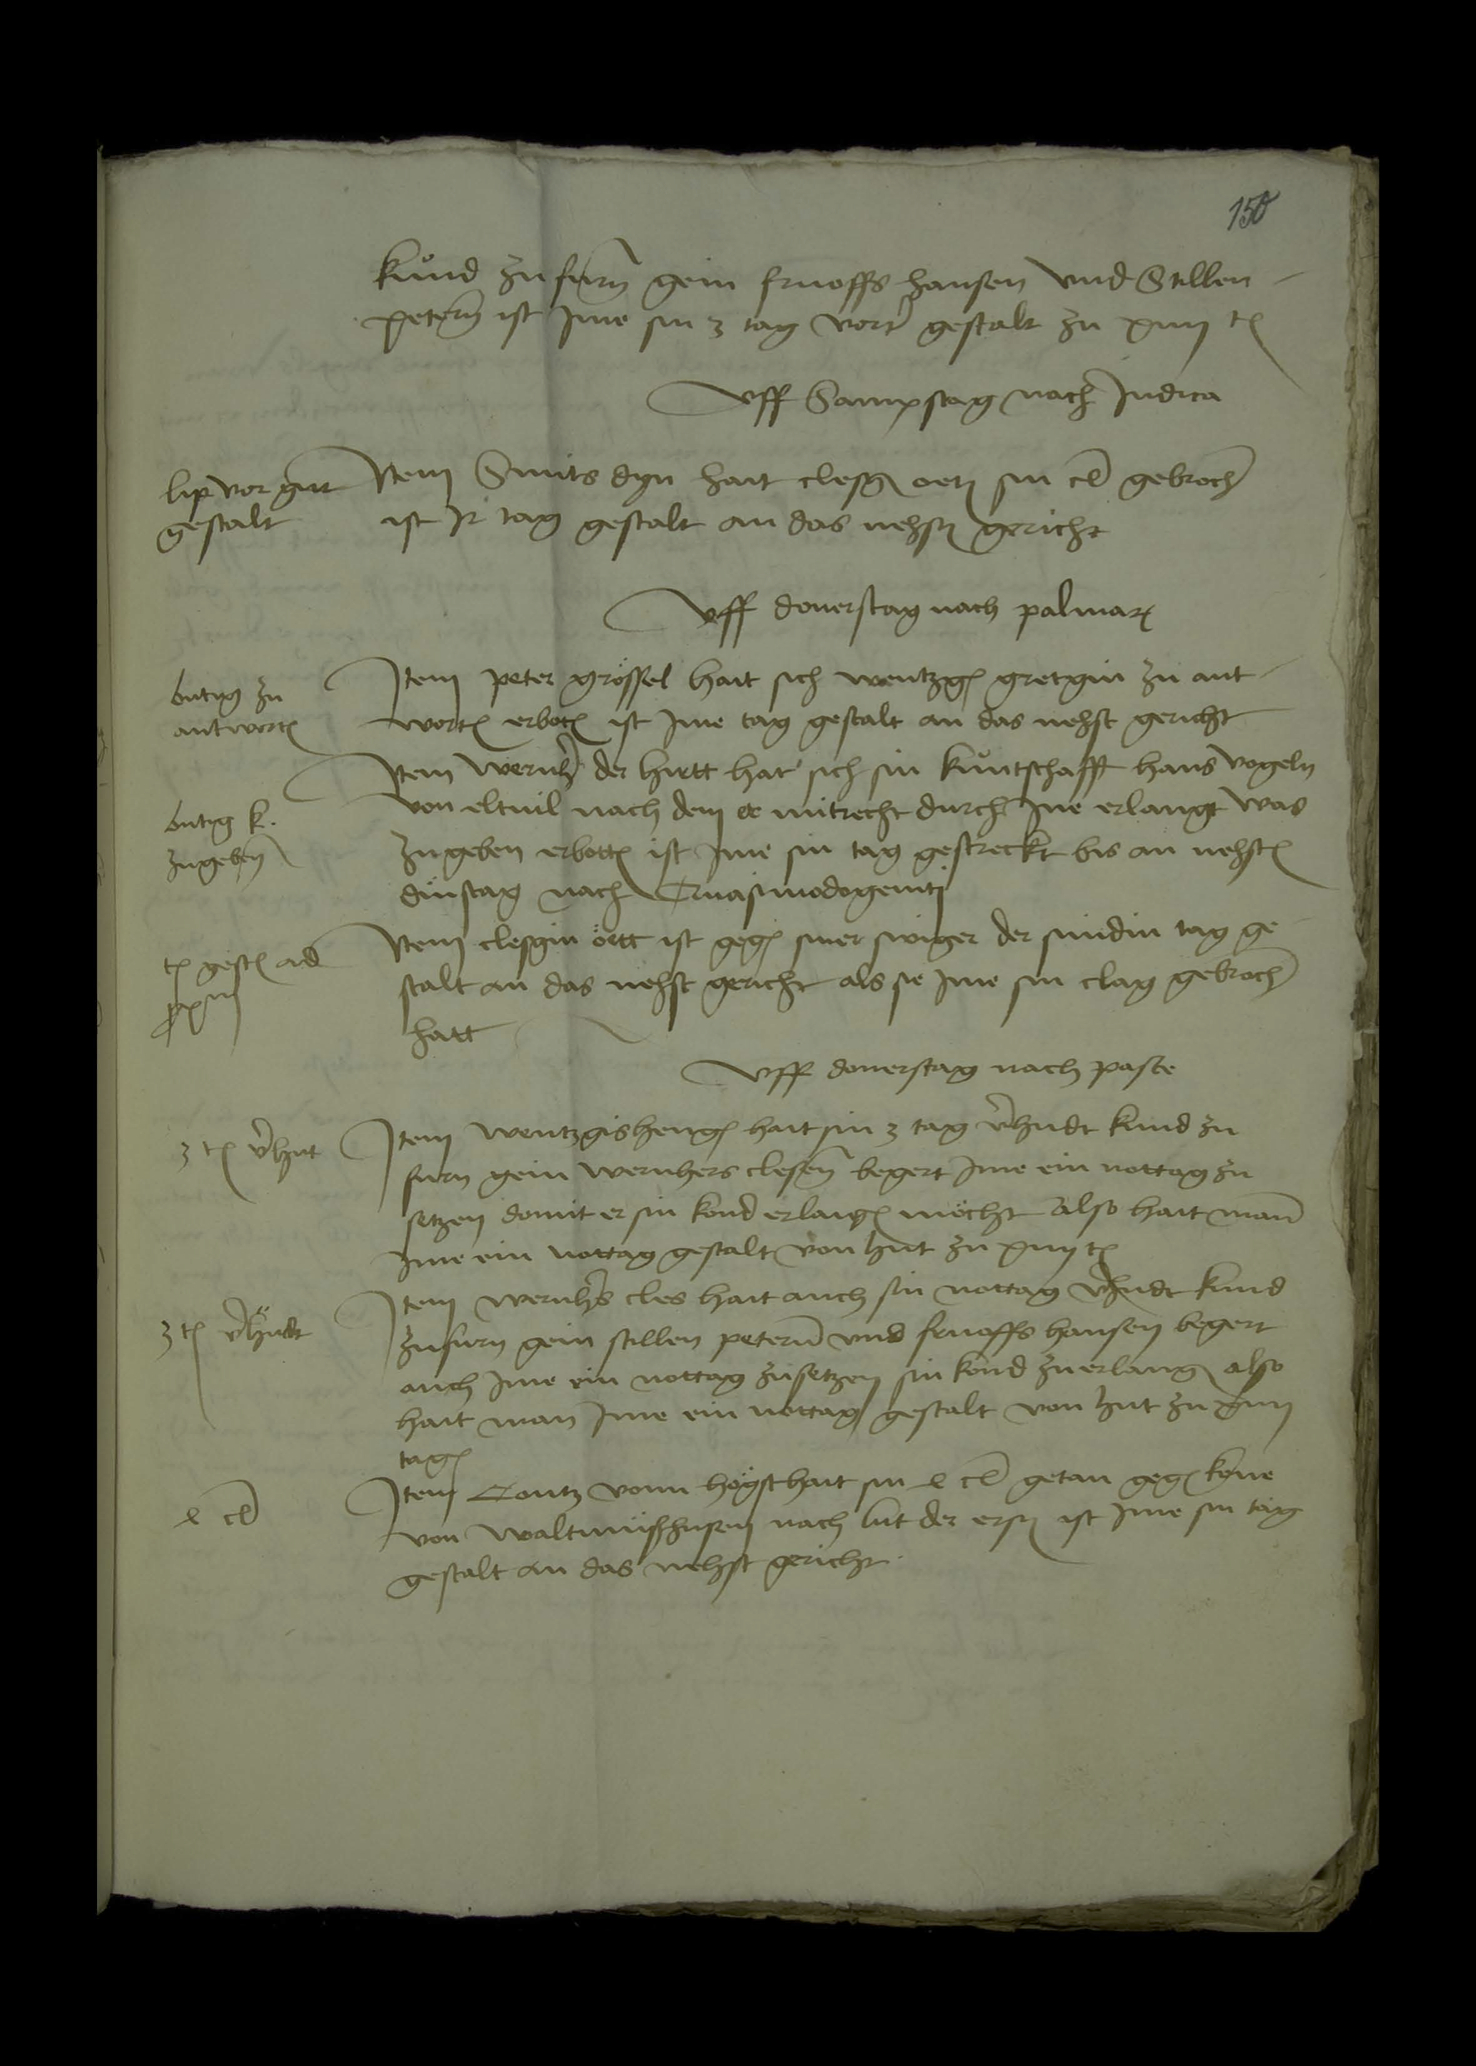 150
kund zu furn gein fruoffs hansen vnd Stillen
petern ist Ime sin 3 tag vort gestalt zu xiiij t
vff Sampstag nach Judica
lip vor gut
gestalt
Item Smits dyn hait clesgin oeten sin cl gebrochen
ist Ir tag gestalt an das nehst gericht
vff donerstag nach palmar
butig zu
antworten
Item peter grössel hait sich wentzgen gretgin zu ant
worten erboten ist Ime tag gestalt an das nehst gericht
butig k.
zugeben
Item wernher der hirtt hat sich sin kuntschafft hans vogeln
von eltuil nach dem er mitrecht durch Ine erlangt was
zugeben erbotten ist Ime sin tag gestreckt bis an nehsten
dinstag nach Quasimodogeniti
t gest ad
Item clesgin ött ist gegen siner swiger der smidin tag ge
stalt an das nehst gericht als sie Ime sin clag gebrochen
hatt
vff donerstag nach paste
3 t verhut
Item wentzgishengen hait sin 3 tag verhudt kund zu
furn gein wernhers clesen begert Ime ein nottag zu
setzen domit er sin kond erlangen möcht Also hait man
Ime ein nottag gestalt von hut zu xiiij t
3 t verhudt
Item wernhers cles hait auch sin nottag verhudt kund
zufurn gein stillen petern vnd fruoffs hansen begert
auch Ime ein nottag zusetzen sin kond zuerlangen also
hait man Ime ein nottag gestalt von hut zu xiiij
tagen
e cl
Item Contz vonn höyst hait sin e cl getan gegen kone
von waltmußhusen nach lut der ersten ist Ime sin tag
gestalt an das nehst gericht